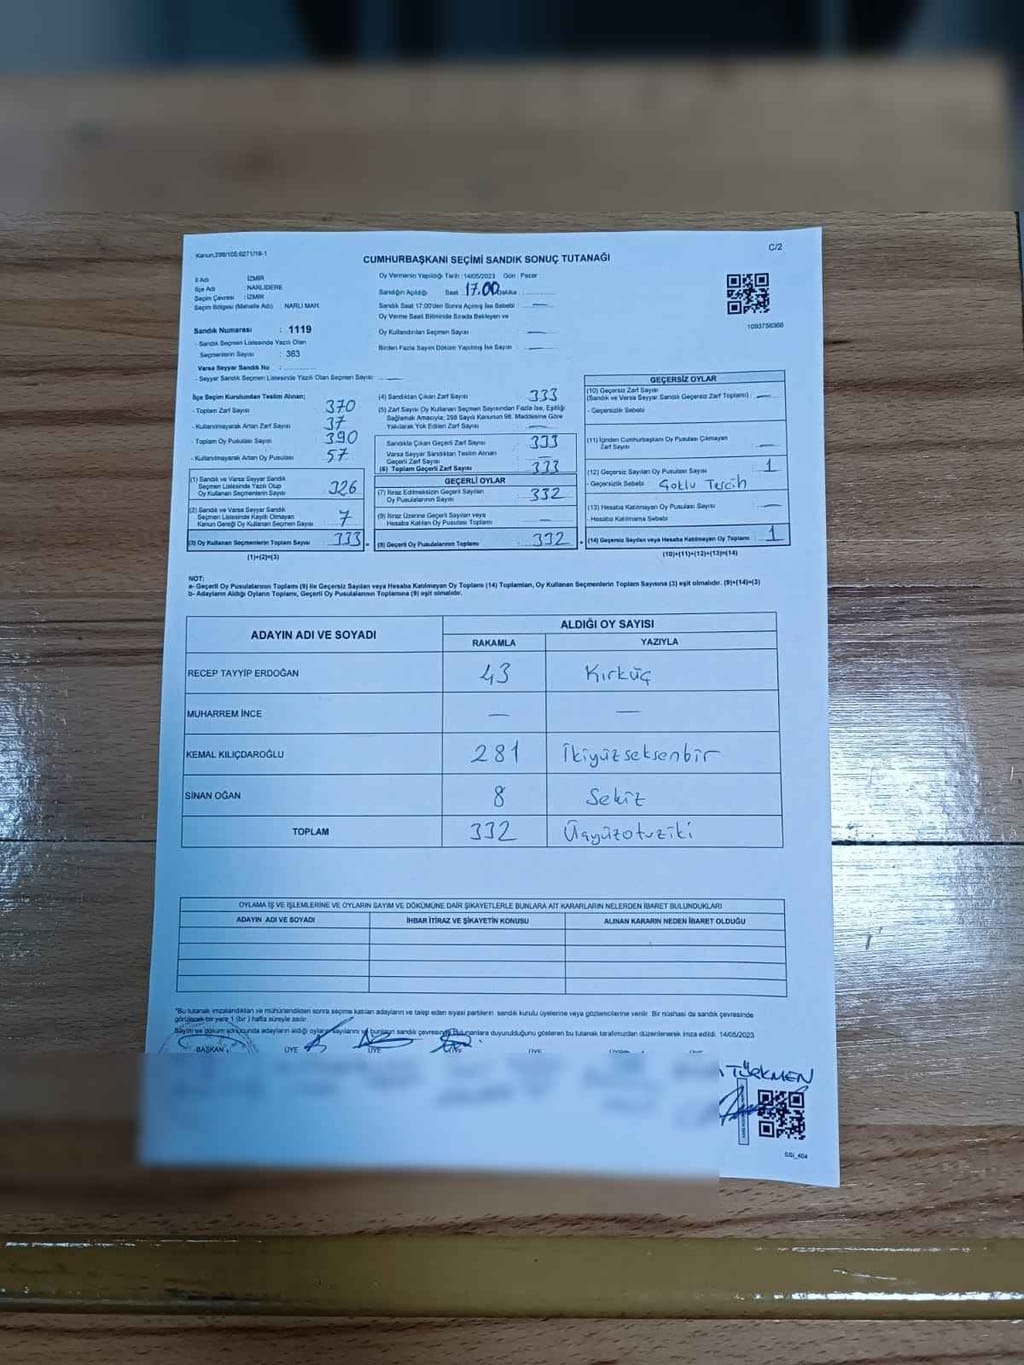 Kanun:298/106,6271/18-1
C/2
CUMHURBAŞKANI SEÇİMİ SANDIK SONUÇ TUTANAĞI
İl Adı İZMİR
İlçe Adı NARLIDERE
Seçim Çevresi : İZMİR
Seçim Bölgesi (Mahalle Adı) : NARLI MAH.
Sandık Numarası : 1119
- Sandık Seçmen Listesinde Yazılı Olan
Seçmenlerin Sayısı : 363
Varsa Seyyar Sandık No :
- Seyyar Sandık Seçmen Listesinde Yazılı Olan Seçmen Sayısı : —
Oy Vermenin Yapıldığı Tarih : 14/05/2023 Gün : Pazar
Sandığın Açıldığı Saat 17.00 Dakika :
Sandık Saat 17:00'den Sonra Açılmış İse Sebebi : —
Oy Verme Saati Bitiminde Sırada Bekleyen ve
Oy Kullandırılan Seçmen Sayısı : —
Birden Fazla Sayım Döküm Yapılmış İse Sayısı : —
1093756366
İlçe Seçim Kurulundan Teslim Alınan;
- Toplam Zarf Sayısı : 370
- Kullanılmayarak Artan Zarf Sayısı : 37
- Toplam Oy Pusulası Sayısı : 390
- Kullanılmayarak Artan Oy Pusulası : 57
(1) Sandık ve Varsa Seyyar Sandık
Seçmen Listesinde Yazılı Olup
Oy Kullanan Seçmenlerin Sayısı : 326
(2) Sandık ve Varsa Seyyar Sandık
Seçmen Listesinde Kayıtlı Olmayan
Kanun Gereği Oy Kullanan Seçmen Sayısı : 7
(3) Oy Kullanan Seçmenlerin Toplam Sayısı : 333
(1)+(2)=(3)
(4) Sandıktan Çıkan Zarf Sayısı : 333
(5) Zarf Sayısı Oy Kullanan Seçmen Sayısından Fazla İse, Eşitliği
Sağlamak Amacıyla; 298 Sayılı Kanunun 98. Maddesine Göre
Yakılarak Yok Edilen Zarf Sayısı : —
Sandıkta Çıkan Geçerli Zarf Sayısı : 333
Varsa Seyyar Sandıktan Teslim Alınan
Geçerli Zarf Sayısı : —
(6) Toplam Geçerli Zarf Sayısı : 333
GEÇERLİ OYLAR
(7) İtiraz Edilmeksizin Geçerli Sayılan
Oy Pusulalarının Sayısı : 332
İtiraz Üzerine Geçerli Sayılan veya
Hesaba Katılan Oy Pusulası Toplamı : —
Geçerli Oy Pusulalarının Toplamı : 332
GEÇERSİZ OYLAR
(10) Geçersiz Zarf Sayısı
(Sandık ve Varsa Seyyar Sandık Geçersiz Zarf Toplamı) : —
- Geçersizlik Sebebi
(11) İçinden Cumhurbaşkanı Oy Pusulası Çıkmayan
Zarf Sayısı : —
(12) Geçersiz Sayılan Oy Pusulası Sayısı : 1
- Geçersizlik Sebebi Çoklu Tercih
(13) Hesaba Katılmayan Oy Pusulası Sayısı : —
- Hesaba Katılmama Sebebi
(14) Geçersiz Sayılan veya Hesaba Katılmayan Oy Toplamı : 1
(10)+(11)+(12)+(13)=(14)
NOT:
a- Geçerli Oy Pusulalarının Toplamı (9) ile Geçersiz Sayılan veya Hesaba Katılmayan Oy Toplamı (14) Toplamları, Oy Kullanan Seçmenlerin Toplam Sayısına (3) eşit olmalıdır. (9)+(14)=(3)
b- Adayların Aldığı Oyların Toplamı, Geçerli Oy Pusulalarının Toplamına (9) eşit olmalıdır.
ADAYIN ADI VE SOYADI ALDIĞI OY SAYISI
RAKAMLA YAZIYLA
RECEP TAYYİP ERDOĞAN 43 Kırküç
MUHARREM İNCE — —
KEMAL KILIÇDAROĞLU 281 İkiyüzseksenbir
SİNAN OĞAN 8 Sekiz
TOPLAM 332 Üçyüzotuziki
OYLAMA İŞ VE İŞLEMLERİNE VE OYLARIN SAYIM VE DÖKÜMÜNE DAİR ŞİKAYETLERLE BUNLARA AİT KARARLARIN NELERDEN İBARET BULUNDUKLARI
ADAYIN ADI VE SOYADI İHBAR İTİRAZ VE ŞİKAYETİN KONUSU ALINAN KARARIN NEDEN İBARET OLDUĞU
"Bu tutanak imzalandıktan ve mühürlendikten sonra seçime katılan adayların ve talep eden siyasi partilerin sandık kurulu üyelerine veya gözlemcilerine verilir. Bir nüshası da sandık çevresinde
görülecek bir yere 1 (bir) hafta süreyle asılır.
Sayım ve döküm sonucunda adayların aldığı oyların sayılarını ve bunların sandık çevresinde bulunanlara duyurulduğunu gösteren bu tutanak tarafımızdan düzenlenerek imza edildi. 14/05/2023
BAŞKAN ÜYE ÜYE ÜYE ÜYE ÜYE
TÜRKMEN